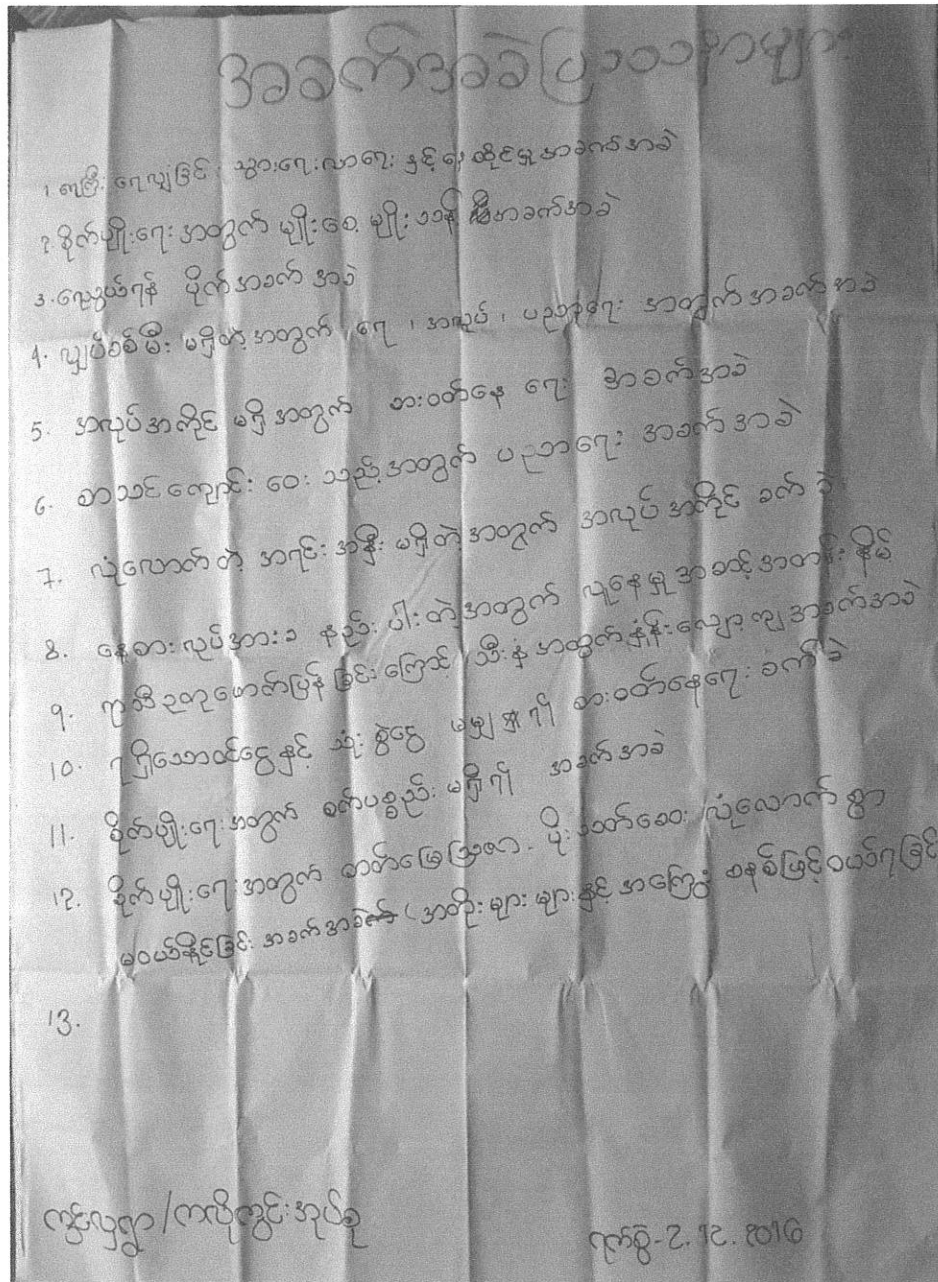 အခက်အခဲပြဿနာများ
၁. ရေကြီး ရေလျှံခြင်း သွားရေးလာရေး နှင့် နေထိုင်မှု အခက်အခဲ
၂. စိုက်ပျိုးရေး အတွက် မျိုးစေ့ မျိုး အခက်အခဲ
3. လေ့လွယ်ရန် ပိုက် အခက် အခဲ
4. လျှပ်စစ်မီး မရှိတဲ့ အတွက် ရေ ၊ အလုပ် ၊ ပညာရေး အတွက် အခက် အခဲ
5. အလုပ် အကိုင် မရှိ အတွက် စားဝတ်နေ ရေး အခက်အခဲ
6. စာသင် ကျောင်း ဝေး သည့် အတွက် ပညာရေး အခက် အခဲ
7. လုံလောက် တဲ့ အရင်း အနှီး မရှိတဲ့ အတွက် အလုပ် အကိုင် ခက် ခဲ
8. နေ့စား လုပ်အားခ နည်း ပါး တဲ့အတွက် လူနေမှု အဆင့်အတန်း နိမ့်
9. ရာသီ ဥတု ဖောက်ပြန် ခြင်း ကြောင့် သီးနှံ အထွက်နှုန်း လျော့ကျ အခက်အခဲ
10. ရရှိသော ဝင်ငွေ နှင့် သုံး စွဲငွေ မမျှ၍ စားဝတ်နေရေး ခက် ခဲ
11. စိုက်ပျိုးရေး အတွက် စက်ပစ္စည်း မရှိ၍ အခက် အခဲ
12. စိုက် ပျိုး ရေး အတွက် ဓာတ်မြေဩဇာ. ပိုး သတ်ဆေး လုံလောက် စွာ
မဝယ်နိုင်ခြင်း အခက် အခဲ (အတိုး များ များ နှင့် အကြွေး စနစ်ဖြင့် ဝယ်ရခြင်း
13.
ကွင်းလှရွာ / ကလိုကွင်းအုပ်စု
ရက်စွဲ - 2. 12. 2016